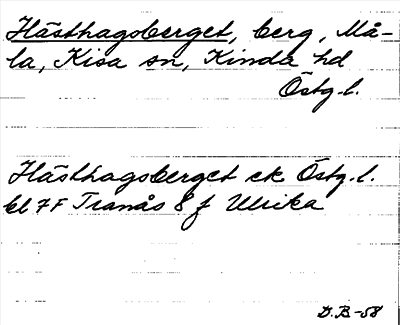 Hästhagsberget, berg, Må-
la, Kisa sn, Kinda hd
Östg.l.
Hästhagsberget ek Östg.l.
bl 7F Tranås 8 f Ulrika
D.B-58